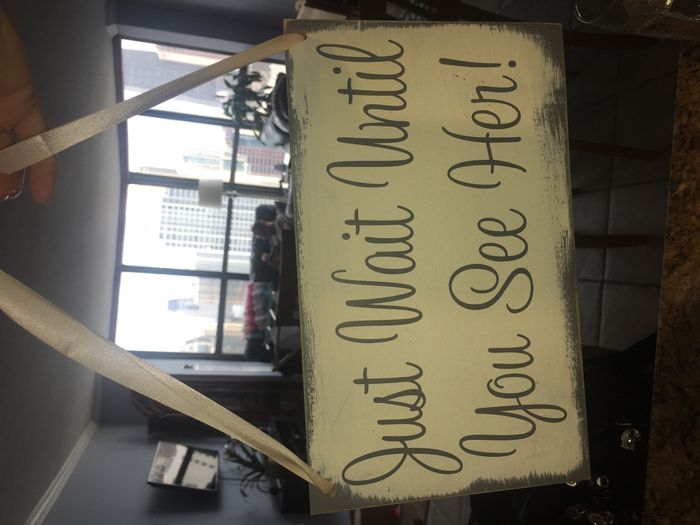 Just Wait Until
You See Her!